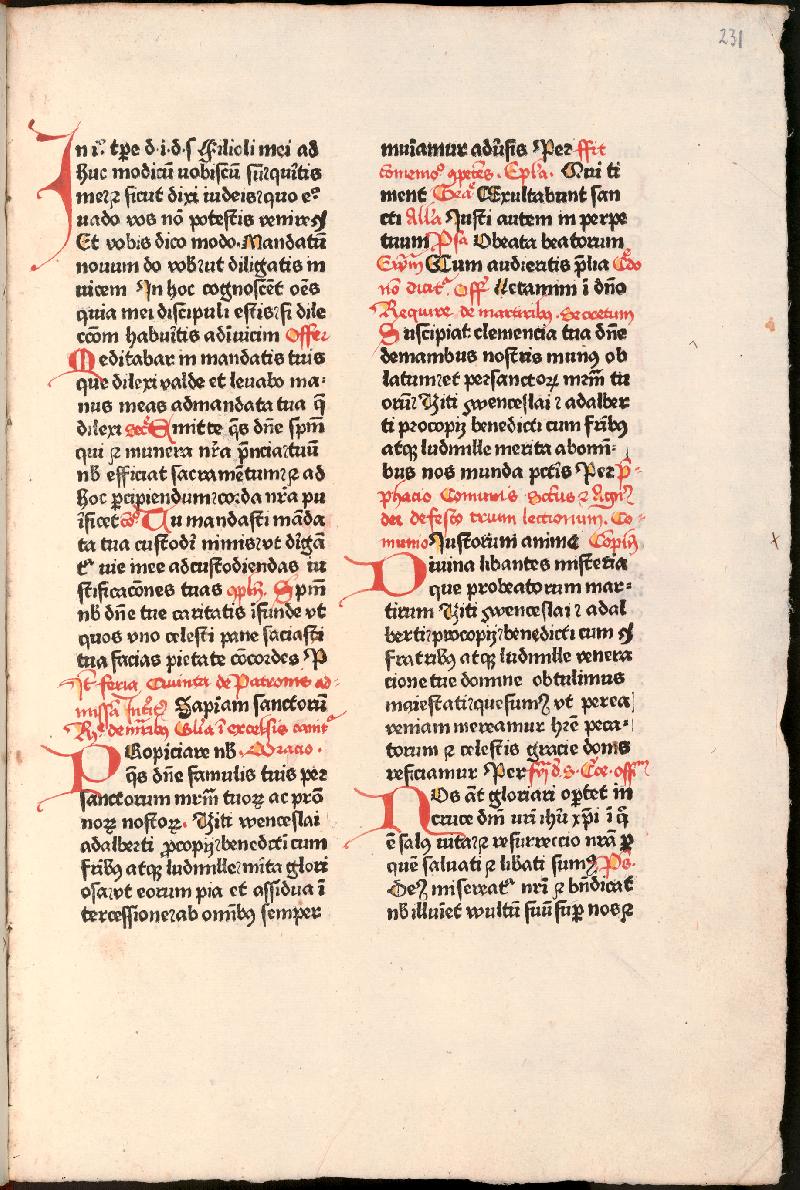 231
In i° tpe d·i·d·s Filioli mei ad
huc modicū uobiscū sū quītis
me⁊ sicut dixi iudeis quo e°
uado vos nō potestis venire
Et vobis dico modo· Mandatū
nouum do vob ut diligatis in
uicem In hoc cognoscēt oēs
quia mei discipuli estis si dile
ccōm habuītis adīuicim Offer
Meditabar in mandatis tuis
que dilexi valde et leuabo ma
nus meas admandata tua q̄
dilexi Secᵃ Emitte q̄s dn̄e sp̄m
qui ⁊ munera nr̄a p̄ncia tuū
nb̄ efficiat sacramētum ⁊ ad
hoc p̄cipiendum corda nr̄a pu
īficet cō° Tu mandasti māda
ta tua custodī nimis vt dīgā
tʳ vie mee adcustodiendas iu
stificacōnes tuas ꝯpln̄. Spm̄
nb̄ dn̄e tue caritatis īfunde vt
quos vno celesti pane saciasti
tua facias pietate cōcordes P
It̄ feria Quinta de Patronis ad
missā Intᵗ9 Sapiam sanctorū
R9 de mr̄ibus Glīa ī excelsis canitʳ
PRopiciare nb̄ · Oracio ·
q̄s dn̄e famulis tuis per
sanctorum mr̄m̄ tuoꝝ ac prō
noꝝ nostoꝝ. Viti wenceslai
adalberti p̄copij benedcti cum
frībꝰ atqꝫ ludmille mīta glori
osa vt eorum pia et assidua ī
tercessione ab omībꝰ semper
muiamur adūsis Per ffit
cōmemoᵒ ꝯpetēs. Epl̄a. Qui ti
ment Graᵃ Exultabunt san
cti All̄a Justi autem in perpe
tuum Psa O beata beatorum
Ew̄m Cum audieritis p̄lia Cdo
nō dicitʳ. Off Letamini ī dn̄o
Require de martiribꝰ. Secretum
Suscipiat clemencia tua dn̄e
demambus nostris munꝰ ob
latum et persanctoꝝ mr̄m̄ tu
orū Viti wenceslai ⁊ adalber
ti procopij benedicti cum fr̄ibꝰ
atqꝫ ludmille merita abomī
bus nos munda pctīs Per p̄
phacio Comunis Sctus ⁊ Agnꝰ
dei defesto trium lectionum. Co
munio Justorum anime Coplꝰ
Diuina libantes misteria
que probeatorum mar
tirum Viti wenceslai ⁊ adal
berti procopij benedicti cum
fratribꝰ atqꝫ ludmille venera
cione tue domne obtulimus
maiestati quesumꝰ vt per ea
veniam mereamur hr̄e peca
torum ⁊ celestis gracie donis
reficiamur Per fr̄ia d. S. Cᵒe. offᵐ
NOs āt gloriari oꝑtet in
cruce dn̄i nr̄i ih̄u xp̄i ī q̄
ē salꝰ uita ⁊ resurreccio nrā ꝑ
quē saluati ⁊ libati sumꝰ Ps̄.
Deꝰ misereatʳ nr̄i ⁊ bn̄dicat
nb̄ illuīet wultū suū suꝑ nos ⁊